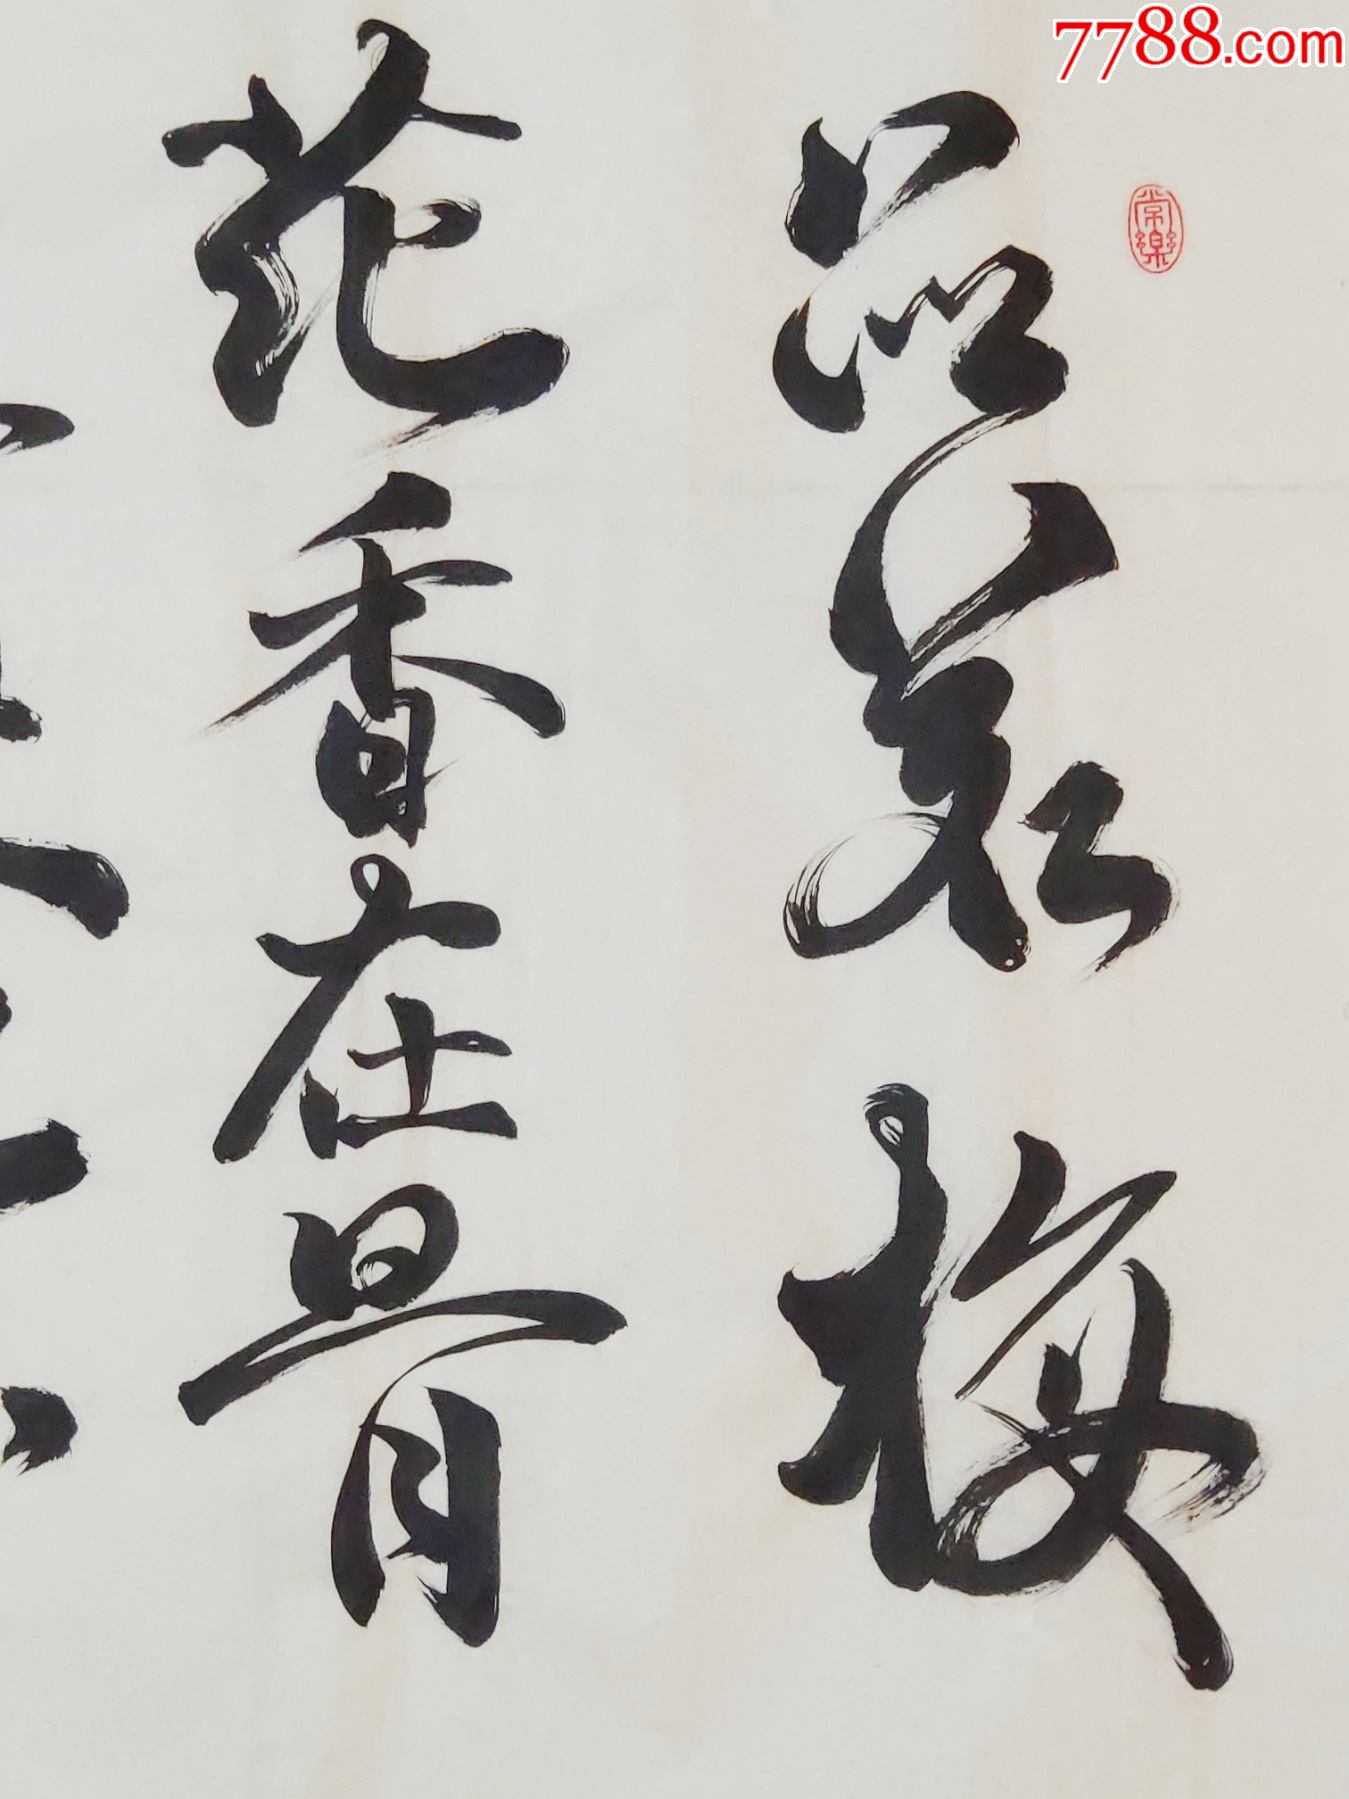 7788.com
常樂
品若梅
花香在骨